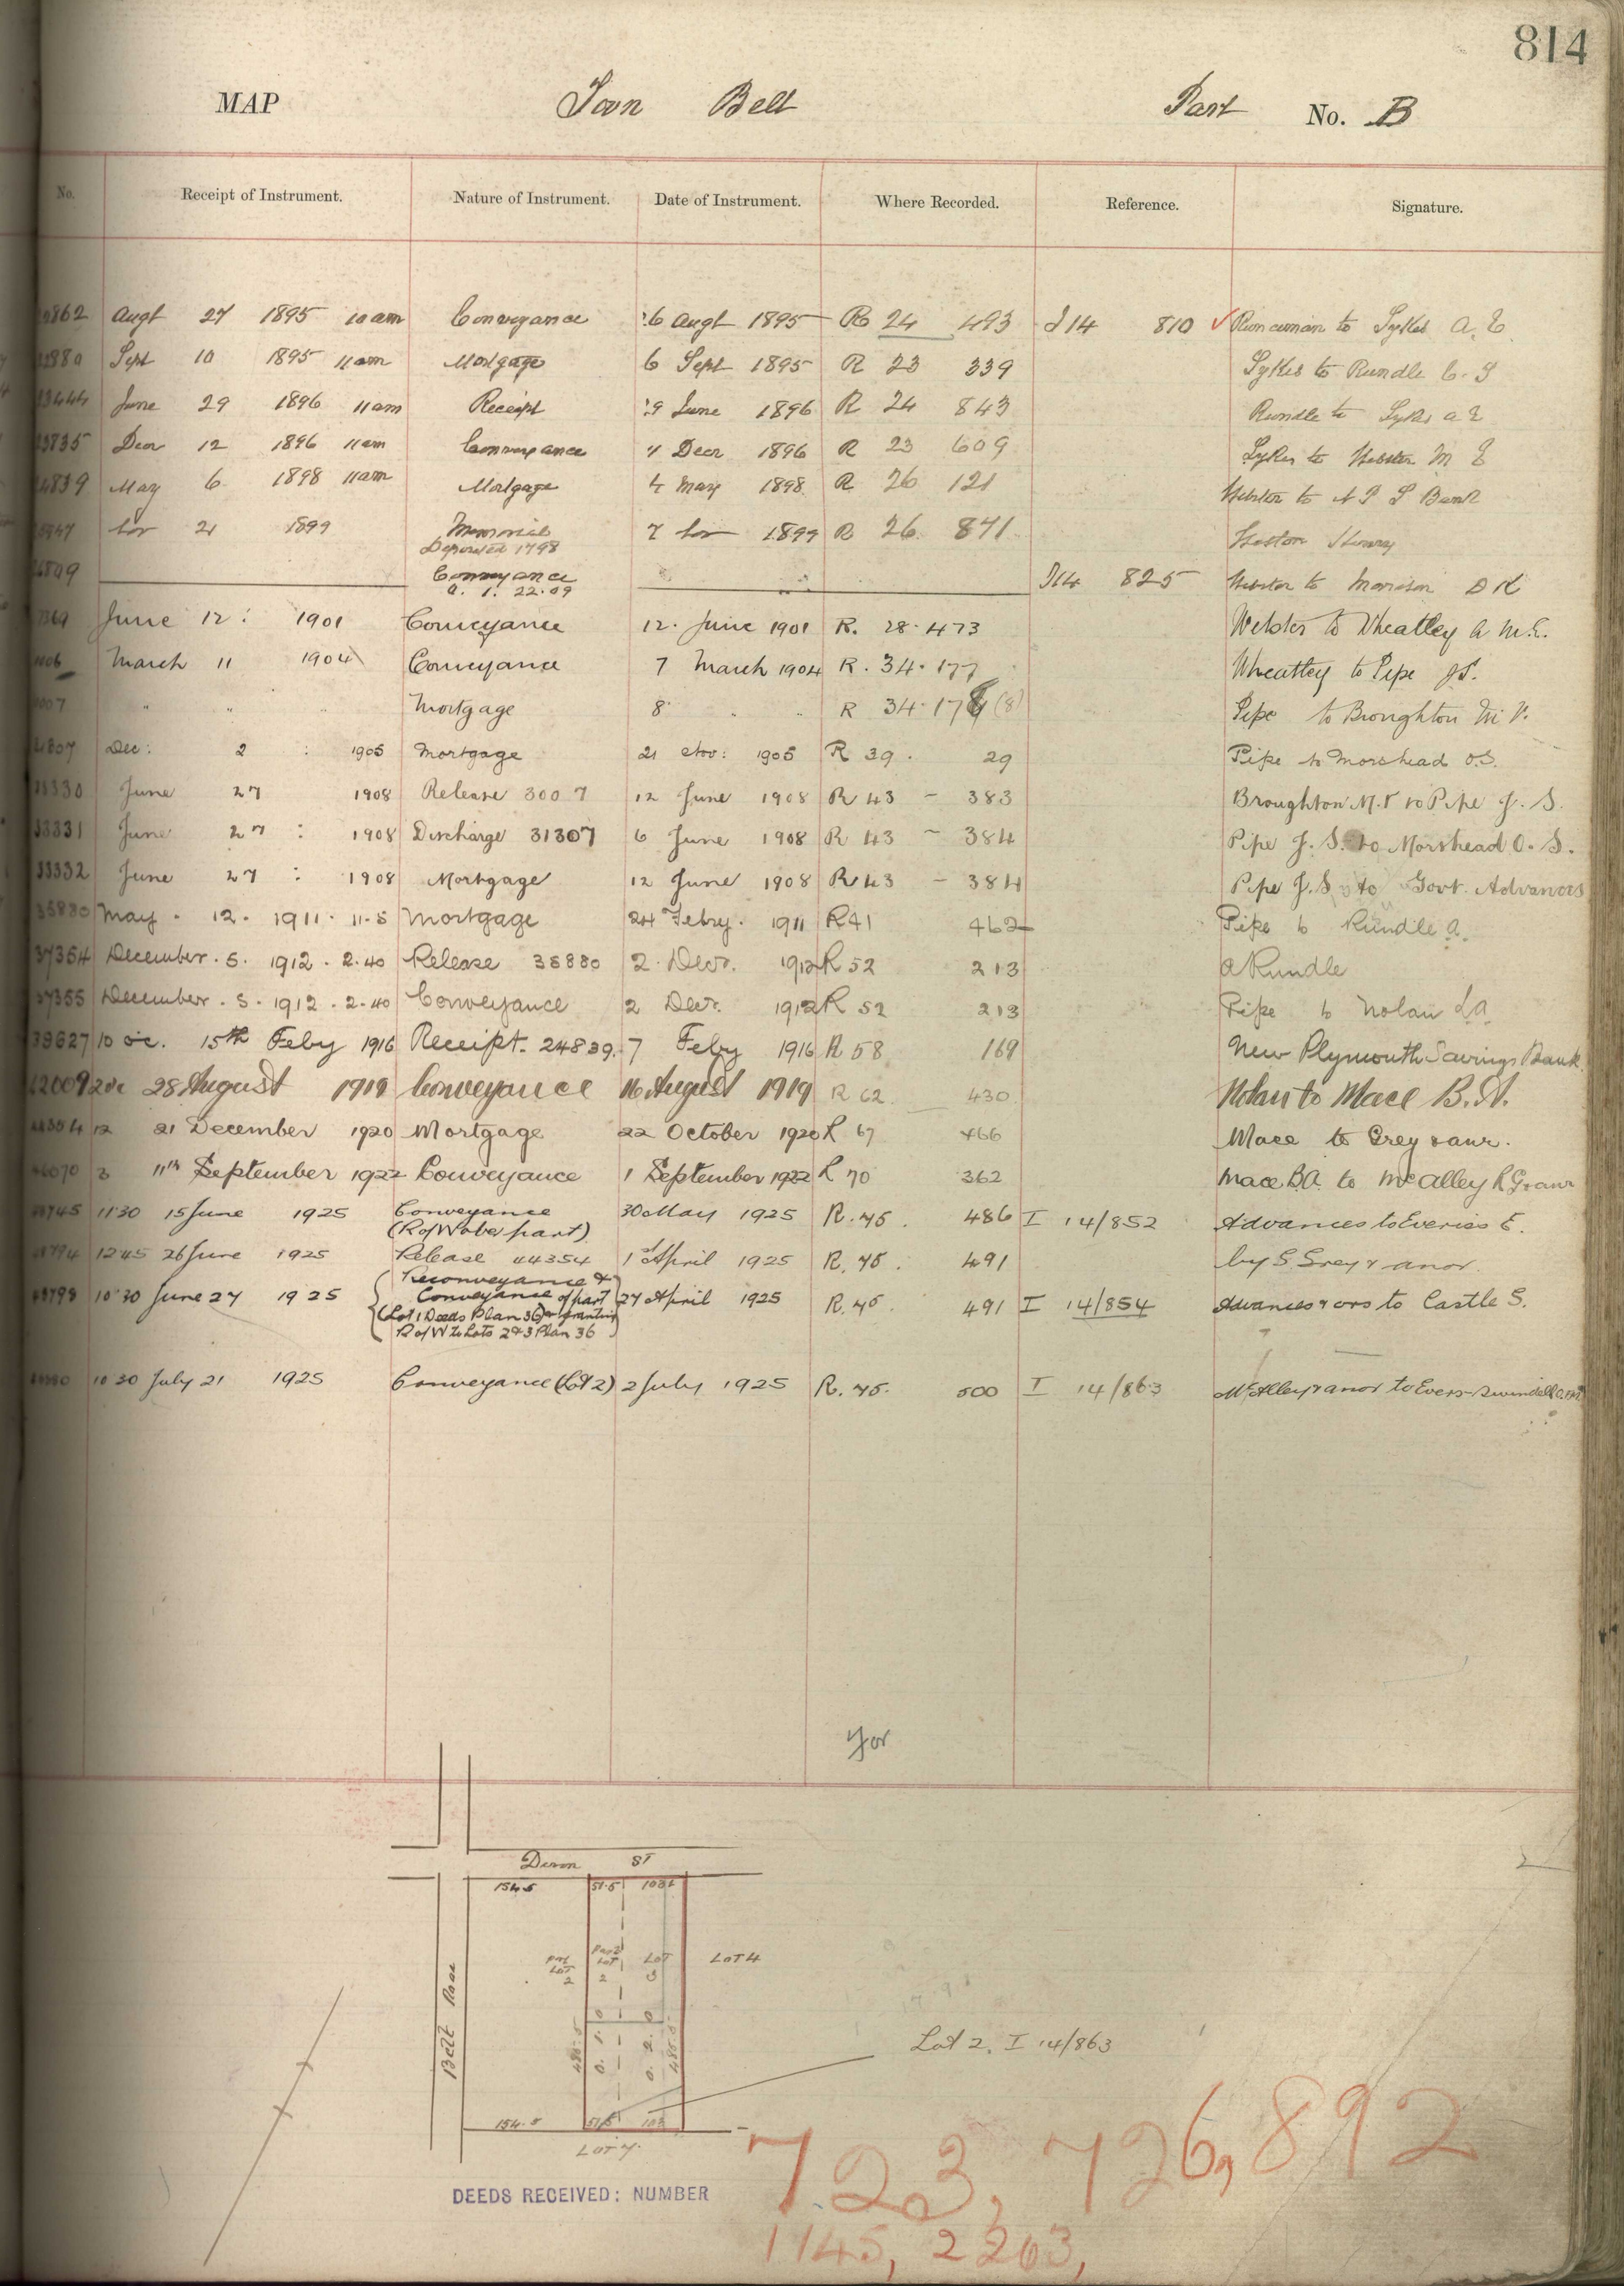 814
MAP Town Belt Part No. B
No. Receipt of Instrument. Nature of Instrument. Date of Instrument. Where Recorded. Reference. Signature.
Augt 27 1895 10 am Conveyance 26 Augt 1895 R 24 493 I 14 810 Runciman to Sykes A. E.
Sept 10 1895 11 am Mortgage 6 Sept 1895 R 23 339 Sykes to Rundle
June 29 1896 11 am Receipt 29 June 1896 R 24 843 Rundle to Sykes A E
Decr 12 1896 11 am Conveyance 4 Decr 1896 R 23 609 Sykes to Webster M E
May 6 1898 11 am Mortgage 4 May 1898 R 26 121 Webster to N P S Bank
21 1899 7 1899 R 26 841
Conveyance I 14 825 Webster to
June 12 : 1901 Conveyance 12. June 1901 R. 28. 473 Webster to Wheatley A M. E.
March 11 1904 Conveyance 7 March 1904 R. 34. 177 Wheatley to Pipe J S.
" " " Mortgage 8 " " R 34. 178 (8) Pipe to Broughton M. V.
Dec: 2 : 1905 Mortgage 21 Nov: 1905 R 39. 29 Pipe to Morshead O.S.
33330 June 27 1908 Release 3007 12 June 1908 R 43 - 383 Broughton M. V to Pipe J. S.
33331 June 27 : 1908 Discharge 31307 6 June 1908 R 43 - 384 Pipe J. S. to Morshead O. S.
33332 June 27 : 1908 Mortgage 12 June 1908 R 43 - 384 Pipe J. S to Govt. Advances
35880 May . 12. 1911. 11.5 Mortgage 24 Febry. 1911 R 41 462 Pipe to Rundle A.
37354 December. 5. 1912. 2.40 Release 35880 2. Decr. 1912 R 52 213 A Rundle
37355 December. 5. 1912. 2.40 Conveyance 2 Decr. 1912 R 52 213 Pipe to Nolan L A
39627 10 oc. 15th Feby 1916 Receipt. 24839. 7 Feby 1916 R 58 169 New Plymouth Savings Bank
42009 2 oc 28 August 1919 Conveyance 16 August 1919 R 62 430 Nolan to Mace B. A.
12 21 December 1920 Mortgage 22 October 1920 R 67 466 Mace to Grey & anr.
3 11th September 1922 Conveyance 1 September 1922 R 70 362 Mace B.A. to McAlley R G & anr
11 30 15 June 1925 Conveyance 30 May 1925 R. 45. 486 I 14/852 Advances to Everiss E.
(R of W ober part)
12 45 26 June 1925 Release 44354 1 April 1925 R. 45. 491 by S. Grey & anor.
Reconveyance &
10 30 June 27 1925 Conveyance of part 27 April 1925 R. 45. 491 I 14/854 Advances & ors to Castle S.
(Lot 1 Deeds Plan 36) granting
R of W to Lots 2 & 3 Plan 36
10 30 July 21 1925 Conveyance (Lot 2) 2 July 1925 R. 45. 500 I 14/863 McAlley & anor to Evers-Swindell
for
Devon ST
154.5 51.5 103
Part LOT 2 Part LOT 2 LOT 3 LOT 4
Belt Road
485.5 485.5
Lot 2. I 14/863
154.5 51.5 103
LOT 7.
723, 726, 892
DEEDS RECEIVED: NUMBER
1145, 2263,